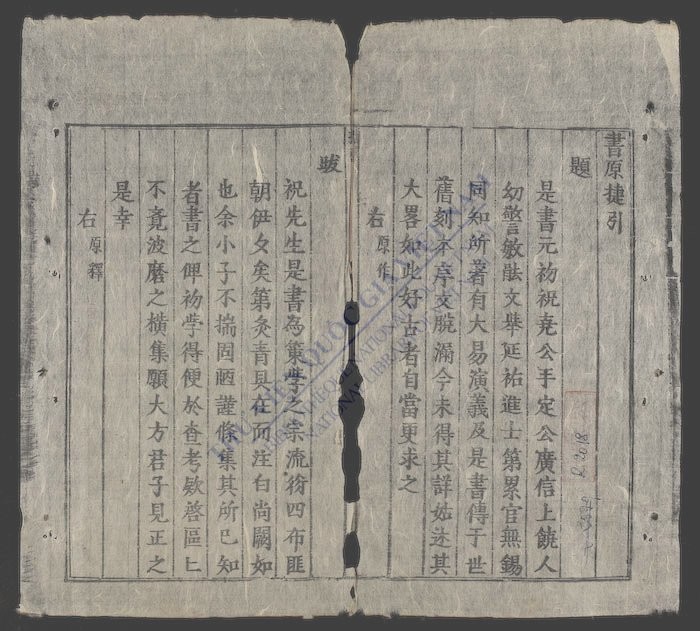 書原捷引
題
是書元初祝尭公手定公廣信上饒人
幼警敏能文舉延祐進士第累官無錫
同知所著有大易演義及是書傳于世
舊刻不序文脱漏今未得其詳姑述其
大畧如此好古者自當更求之
右原作
跋
祝先生是書為策學之宗流衍四布匪
朝伊夕矣第灸青具在而注白尚闕如
也余小子不揣固陋謹條集其所已知
者書之俾初學得便於查考欵啓區匕
不竟波磨之橫集願大方君子見正之
是幸
右原釋
THƯ VIỆN QUỐC GIA VIỆT NAM
NATIONAL LIBRARY OF VIETNAM
R.2018